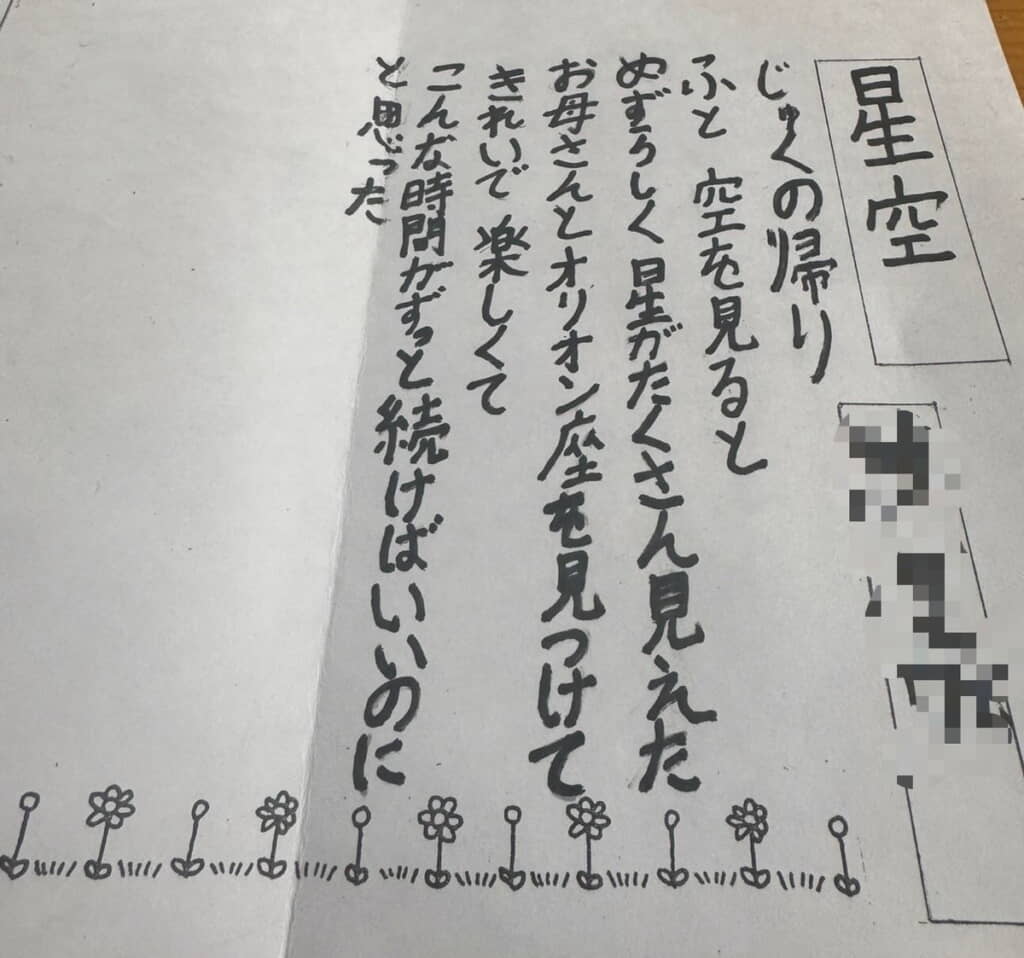 星空
じゅくの帰り
ふと空を見ると
めずらしく星がたくさん見えた
お母さんとオリオン座を見つけて
きれいで楽しくて
こんな時間がずっと続けばいいのに
と思った